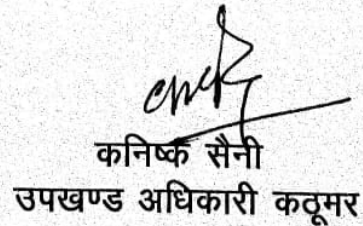 कनिष्क सैनी
उपखण्ड अधिकारी कठूमर